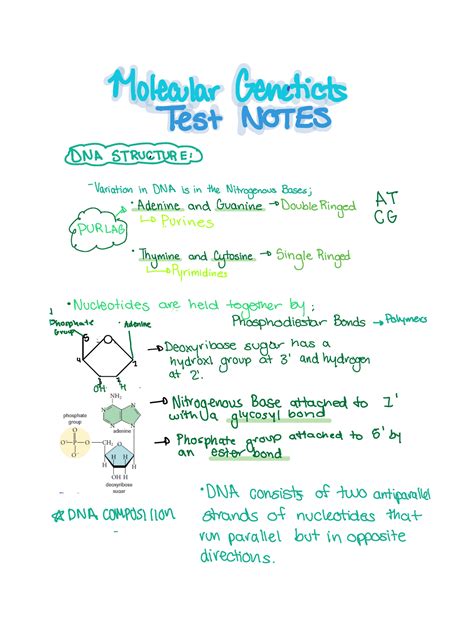 Molecular Geneticts
Test NOTES
DNA STRUCTURE:
- Variation in DNA is in the Nitrogenous Bases;
• Adenine and Guanine → Double Ringed
↳ Purines
AT
CG
PURLAG
• Thymine and Cytosine → Single Ringed
↳ Pyrimidines
• Nucleotides are held together by:
Phosphodiestar Bonds → Polymers
Phosphate
Group
• Adenine
5
4
1
OH H
→ Deoxyribase sugar has a
hydroxl group at 3' and hydrogen
at 2'.
→ Nitrogenous Base attached to 1'
with a glycosyl bond
→ Phosphate group attached to 5' by
an ester bond
NH₂
N
N
N
N
adenine
phosphate
group
O
O⁻ P O CH₂ O
O⁻
H H
H H
OH H
deoxyribose
sugar
☆ DNA COMPOSITION
-
• DNA consists of two antiparallel
strands of nucleotides that
run parallel but in opposite
directions.